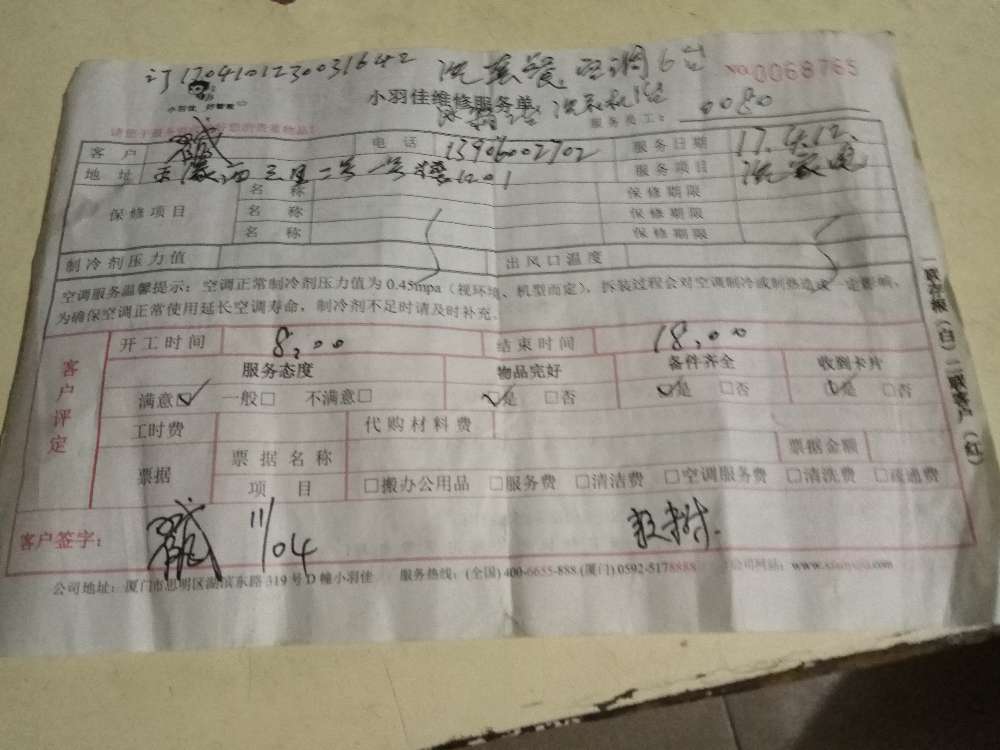 订1704101230031642 洗套餐 空调6台 No 0068765
小羽佳 好管家
小羽佳维修服务单 洗衣机1台 服务员工: 0080
客户 电话 13906002702 服务日期 17.4.12.
地址 西三里二号一号楼1201 服务项目 洗家电
保修项目 名称 保修期限
名称 保修期限
名称 保修期限
制冷剂压力值 出风口温度
空调服务温馨提示：空调正常制冷剂压力值为0.45mpa（视环境、机型而定），拆装过程会对空调制冷或制热造成一定影响，
为确保空调正常使用延长空调寿命，制冷剂不足时请及时补充。
客户评定
开工时间 8:00 结束时间 18:00
服务态度 物品完好 备件齐全 收到卡片
满意☑ 一般□ 不满意□ ☑是 □否 ☑是 □否 ☑是 □否
工时费 代购材料费
票据 票据名称 票据金额
项目 □搬办公用品 □服务费 □清洁费 □空调服务费 □清洗费 □疏通费
客户签字： 11/04
公司地址：厦门市思明区湖滨东路319号D幢小羽佳 服务热线：(全国)400-6655-888 (厦门)0592-5178888 公司网站：
一联存根（白）二联客户（红）